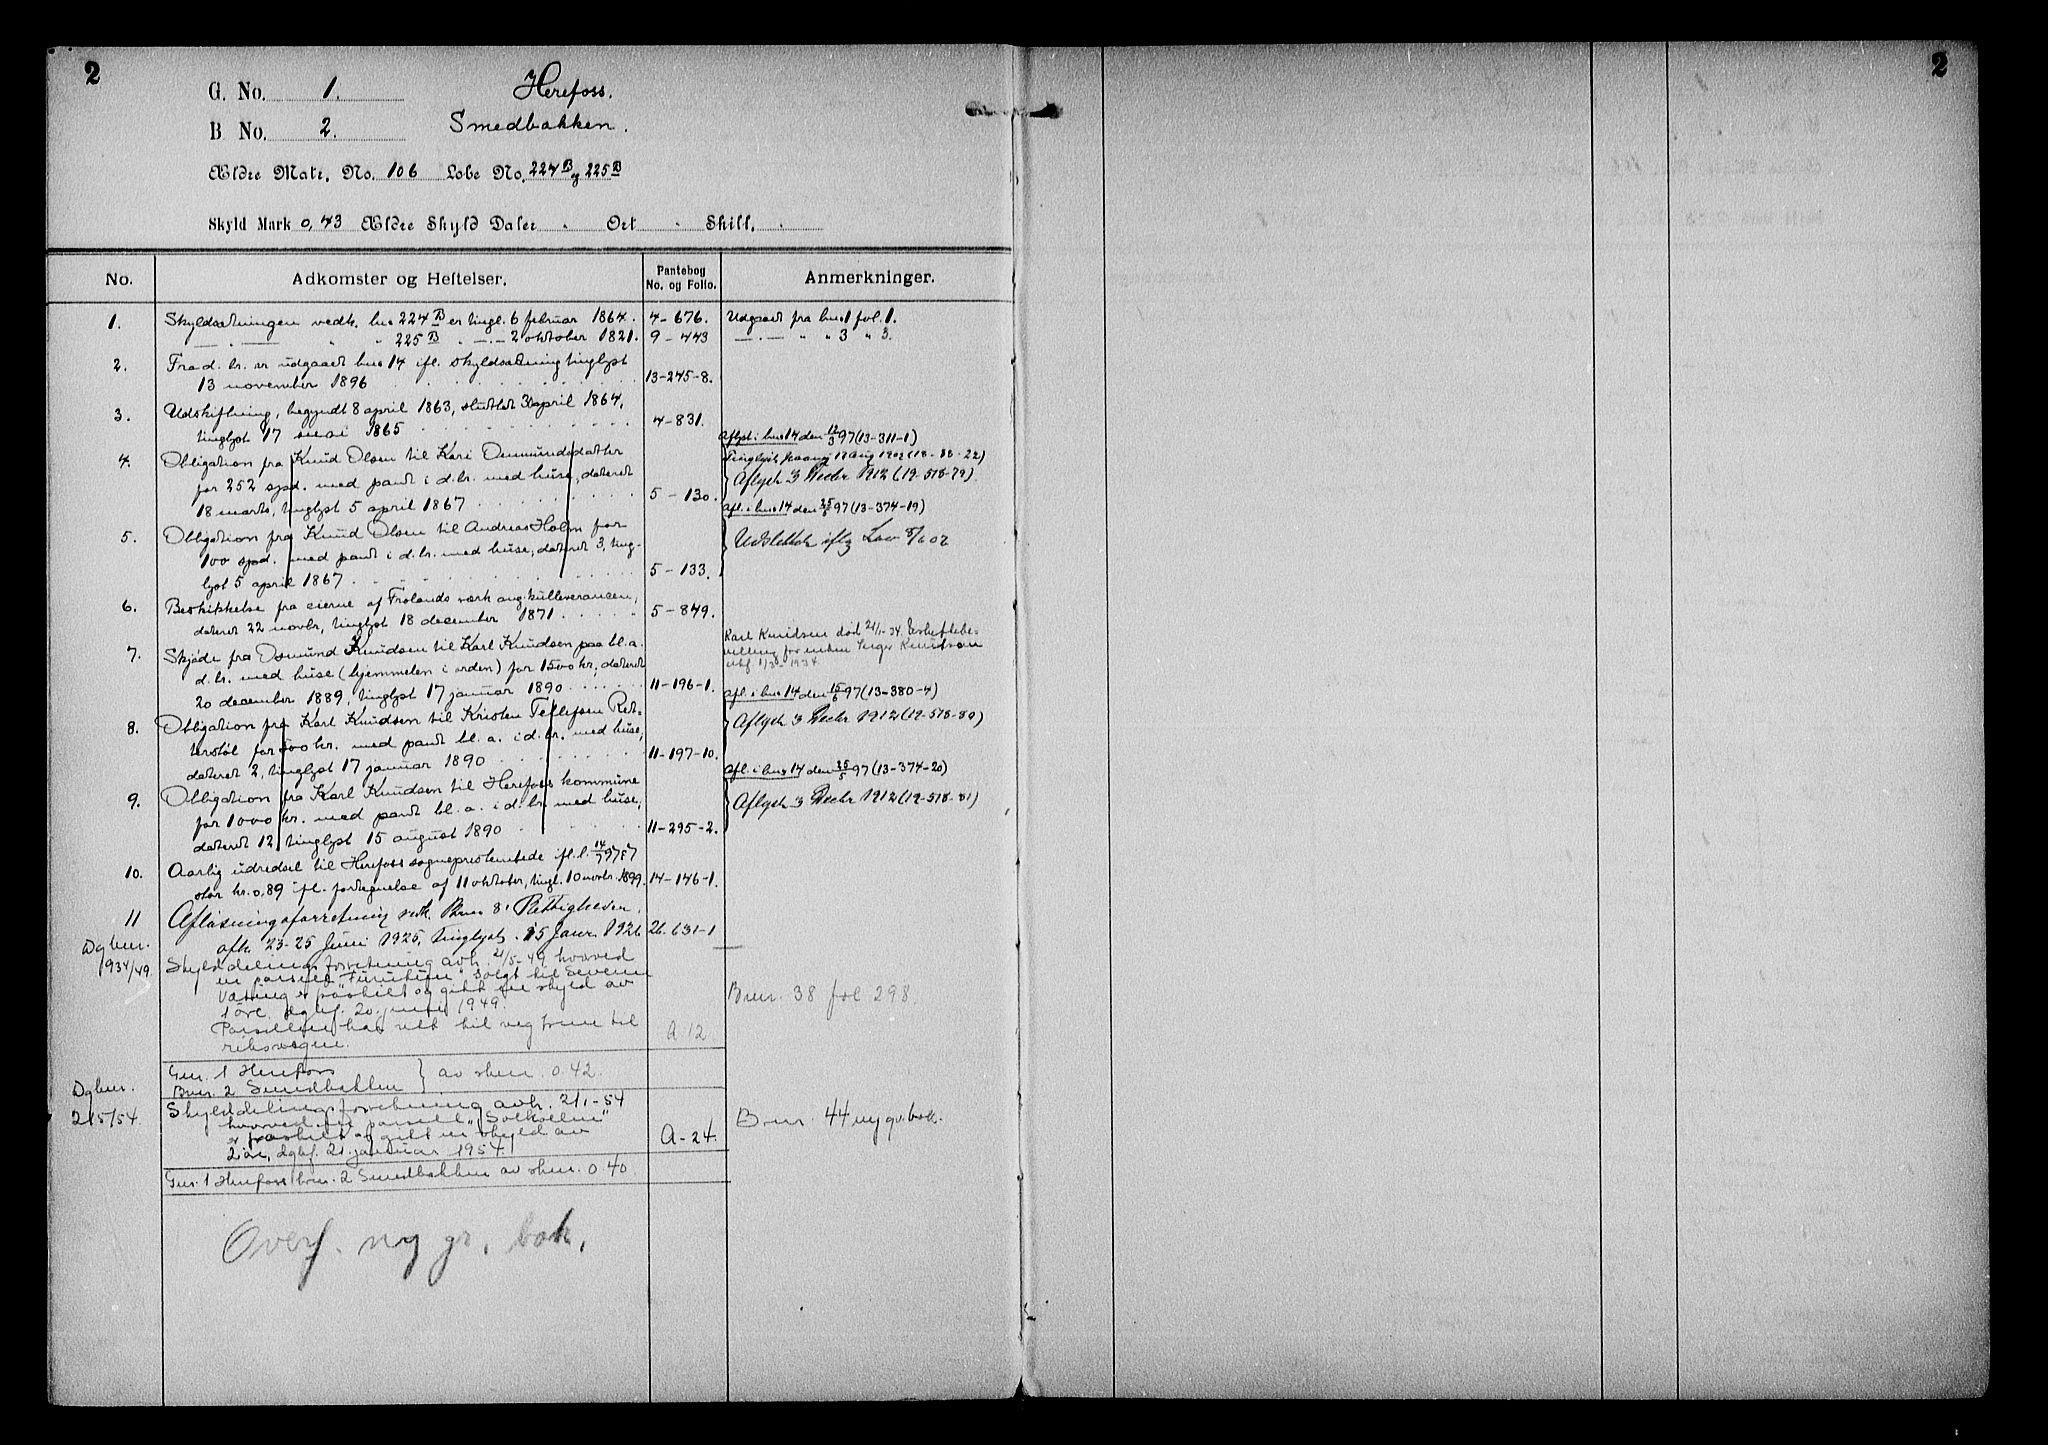 2
2
G. No. 1. Herefoss.
B No. 2. Smedbakken.
Ældre Matr. No. 106 Løbe No. 224 B og 225 B
Skyld Mark 0,43 Ældre Skyld Daler Ort Skill.
No. Adkomster og Heftelser. Pantebog No. og Folio. Anmerkninger.
1. Skyldsætningen vedk. bno 224 B er tingl. 6 februar 1864. 4-676. Udgaaet fra bno 1 fol. 1.
— . — " " 225 B " —.— 2 oktober 1821. 9-443 —.— " " 3 " 3.
2. Fra d. br. er udgaaet bno 14 ifl. skyldsætning tinglyst
13 november 1896 13-245-8.
3. Udskiftning, begyndt 8 april 1863, sluttet 30 april 1864,
tinglyst 17 mai 1865 4-831.
Aflyst i bno 14 den 12/3 97 (13-311-1)
4. Obligation fra Knud Olsen til Kari Osmundsdatter
Tinglyst paany 12 Aug 1902 (18-88-22)
for 252 spd. med pant i d. br. med huse, dateret
Aflyst 3 Decbr 1912 (19-578-79)
18 marts, tinglyst 5 april 1867 5-130.
Afl. i bno 14 den 25/5 97 (13-374-19)
5. Obligation fra Knud Olsen til Andreas Holm for
100 spd. med pant i d. br. med huse, dateret 3, ting-
Udslettet iflg Lov 8/6 07
lyst 5 april 1867 5-133.
6. Beskikkelse fra eierne af Frolands værk ang. kulleverancen,
dateret 22 novbr, tinglyst 18 december 1871. 5-849.
7. Skjøde fra Osmund Knudsen til Karl Knudsen paa bl. a.
d. br. med huse (hjemmelen i orden) for 1500 kr., dateret
20 december 1889, tinglyst 17 januar 1890 11-196-1.
Karl Knudsen død 21/1-34. Uskiftebe-
villing for enken Inger Knutsen
dbf. 1/3 1934
Afl. i bno 14 den 15/6 97 (13-380-4)
8. Obligation fra Karl Knudsen til Kristen Tellefsen Ret-
Aflyst 3 Decbr 1912 (19-578-80)
terstøl for 500 kr. med pant bl. a. i d. br. med huse,
dateret 2, tinglyst 17 januar 1890 11-197-10.
Afl. i bno 14 den 25/5 97 (13-374-20)
9. Obligation fra Karl Knudsen til Herefoss kommune
Aflyst 3 Decbr 1912 (19-578-81)
for 1000 kr. med pant bl. a. i d. br. med huse,
dateret 12, tinglyst 15 august 1890 11-295-2.
10. Aarlig udredsel til Herefoss sogneprestembede ifl. l. 14/7 97 § 7
stor kr. 0,89 ifl. fortegnelse af 11 oktober, tingl. 10 novbr. 1899. 14-146-1.
11 Afløsningsforretning vedk. Bno 8's Rettigheder,
afh. 23-25 Juni 1925, tinglyst 15 Janr. 1926 26-631-1
Dgbnr.
1934/49. Skylddelingsforretning avh. 21/5-49, hvorved
en parsell "Furutun" solgt til Severin
Væting er fraskilt og gitt en skyld av
1 øre, dgbf. 20. juni 1949. Bnr. 38 fol 298.
Parsellen har rett til veg frem til
riksvegen. A 12
Gnr. 1 Herefoss
Bnr. 2 Smedbakken } av skm. 0.42.
Dgbnr.
215/54. Skylddelingsforretning avh. 21/1-54
hvorved en parsell "Solkollen"
er fraskilt og gitt en skyld av
2 øre, dgbf. 21. januar 1954 A-24. Bnr. 44 ny gr.bok.
Gnr. 1 Herefoss bnr. 2 Smedbakken av skm. 0.40.
Overf. ny gr. bok.